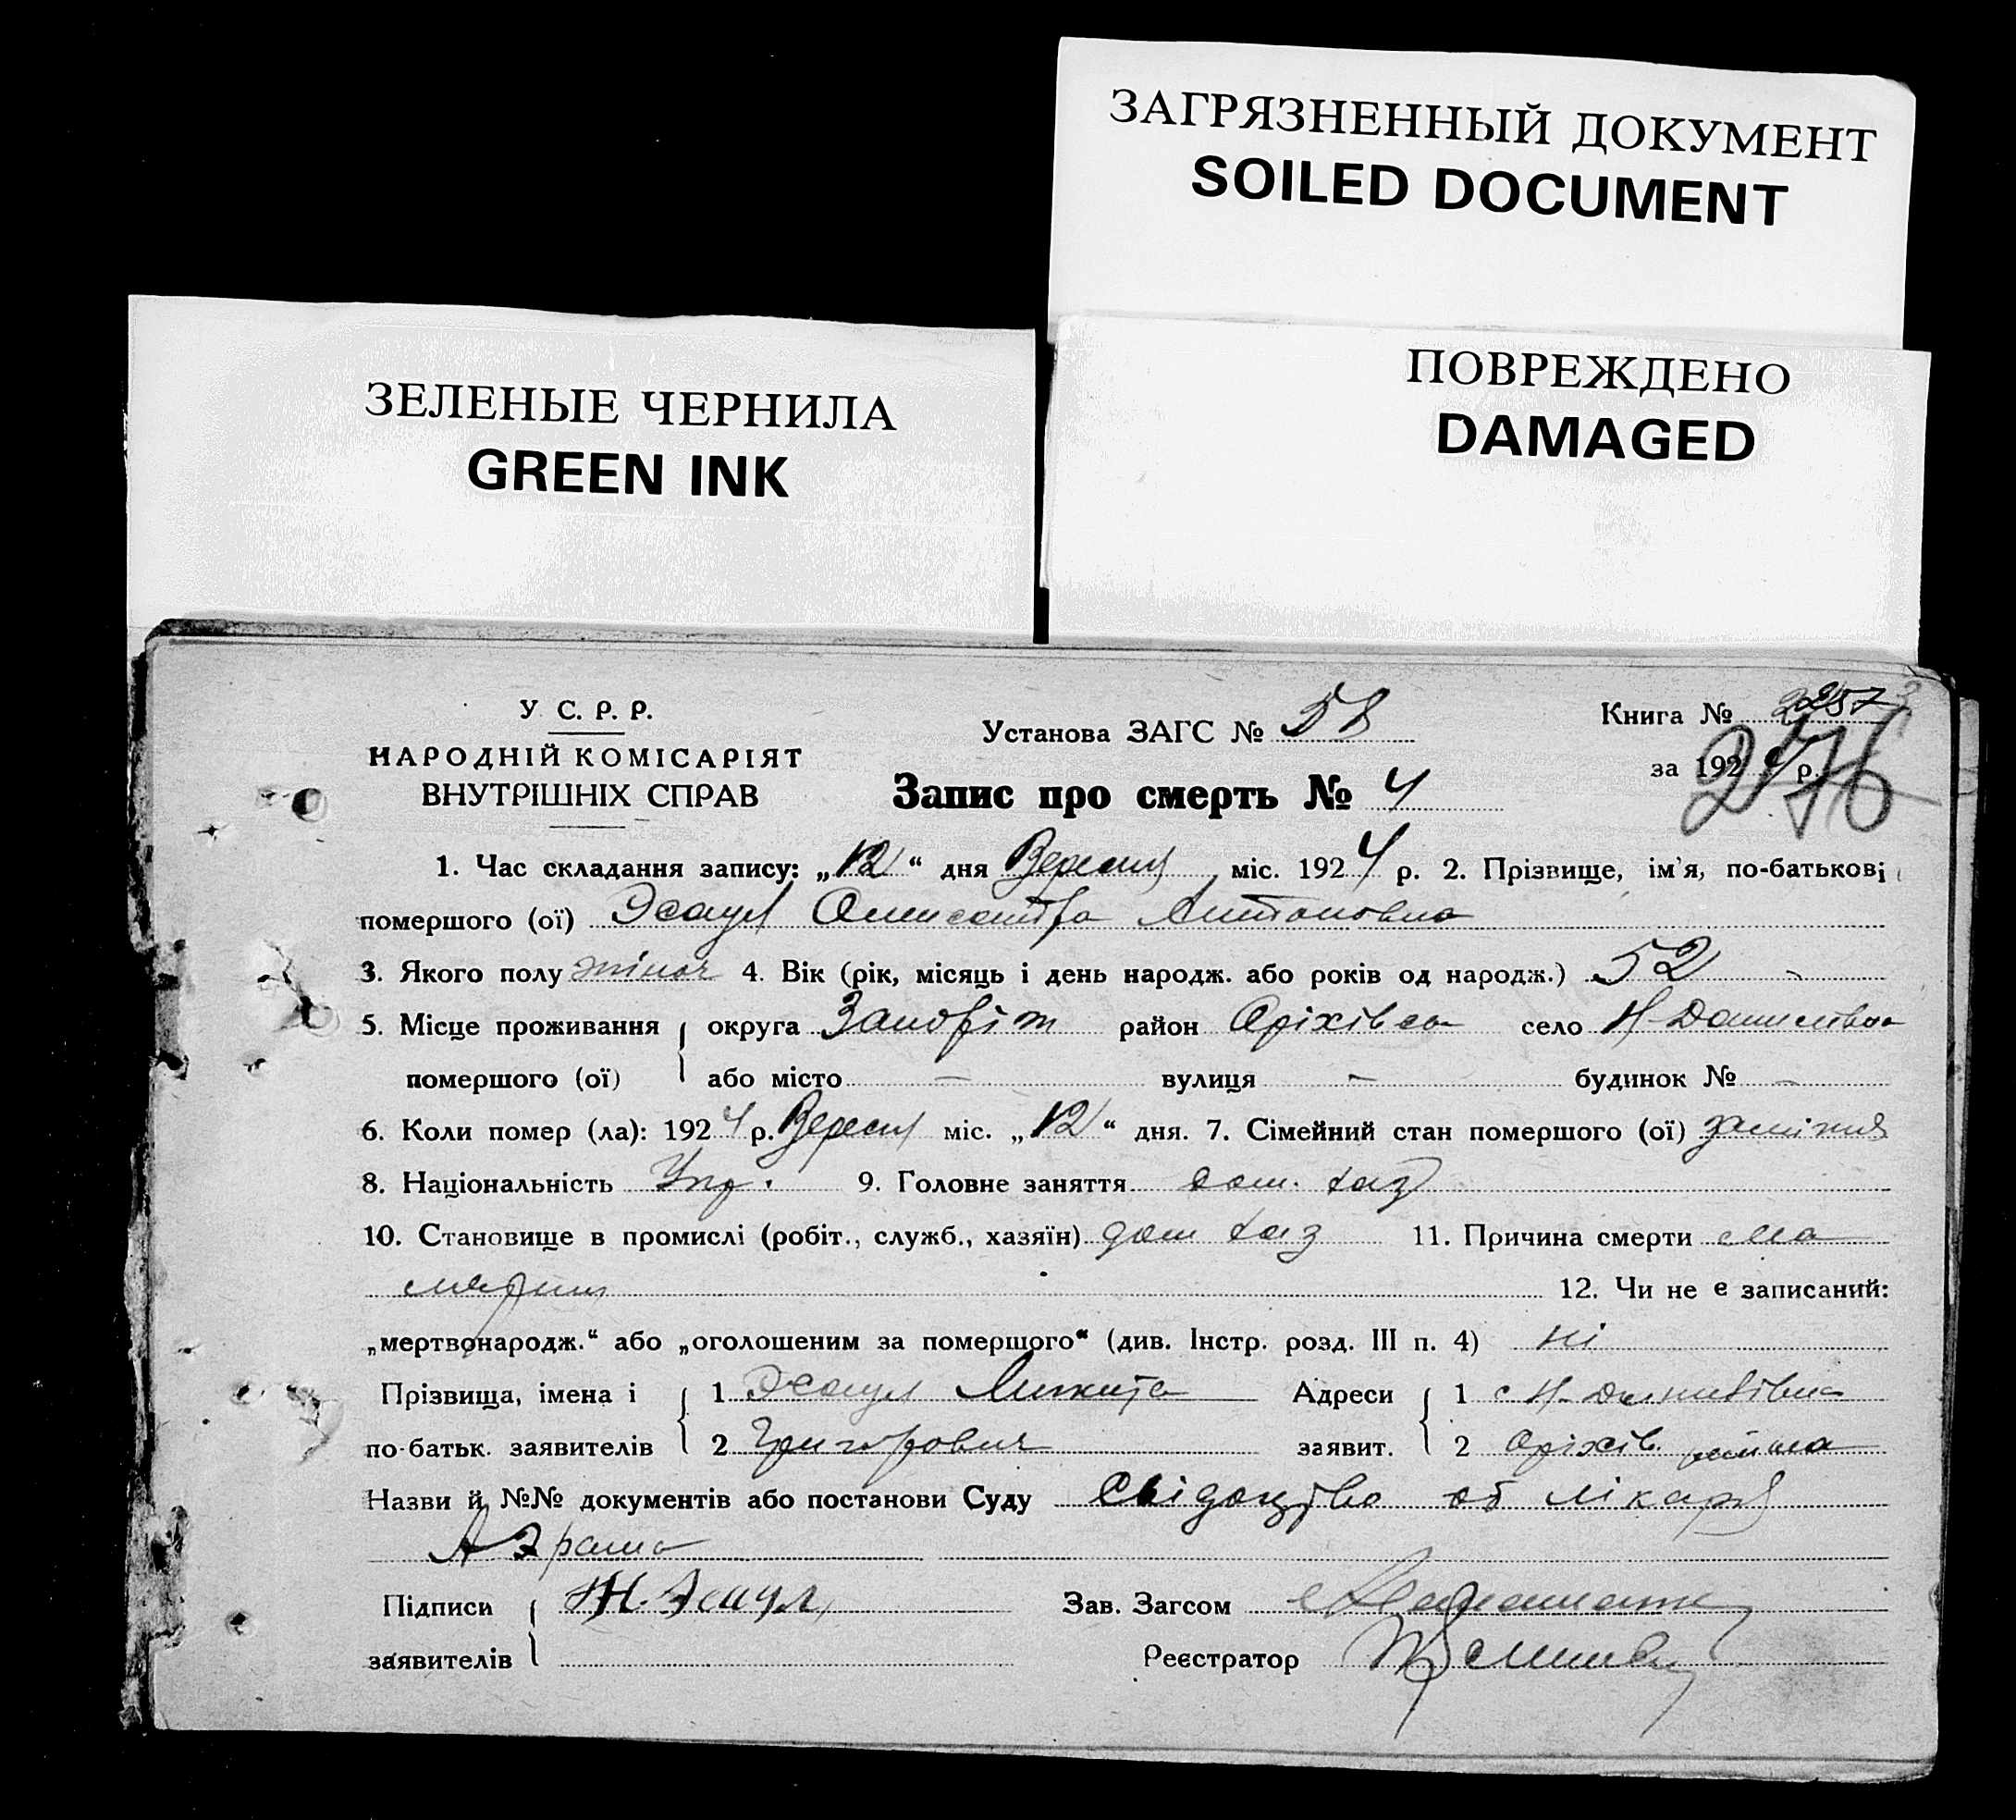 ЗАГРЯЗНЕННЫЙ ДОКУМЕНТ
SOILED DOCUMENT
ПОВРЕЖДЕНО
DAMAGED
ЗЕЛЕНЫЕ ЧЕРНИЛА
GREEN INK
У. С. Р. Р.
НАРОДНІЙ КОМІСАРІЯТ
ВНУТРІШНІХ СПРАВ
Установа ЗАГС № 58
Книга №
за 192 р.
276
Запис про смерть № 4
1. Час складання запису: „12“ дня Вересня міс. 1924 р. 2. Прізвище, ім'я, по-батькові
помершого (ої)
3. Якого полу жіноч 4. Вік (рік, місяць і день народж. або років од народж.) 52 -
5. Місце проживання округа район Оріхівса село
помершого (ої) або місто — вулиця — будинок № -
6. Коли помер (ла): 1924 р. Вересня міс. „12“ дня. 7. Сімейний стан помершого (ої) заміжня
8. Національність Укр. 9. Головне заняття дом. хаз
10. Становище в промислі (робіт., служб., хазяїн) дом хаз 11. Причина смерти
12. Чи не є записаний:
„мертвонародж.“ або „оголошеним за помершого“ (див. Інстр. розд. III п. 4) ні
Прізвища, імена і 1 Микита Адреси 1 с
по-батьк. заявителів 2 Григорович заявит. 2 Оріхів. района
Назви й №№ документів або постанови Суду Свідоцтво об лікаря
Підписи Зав. Загсом
заявителів Реєстратор